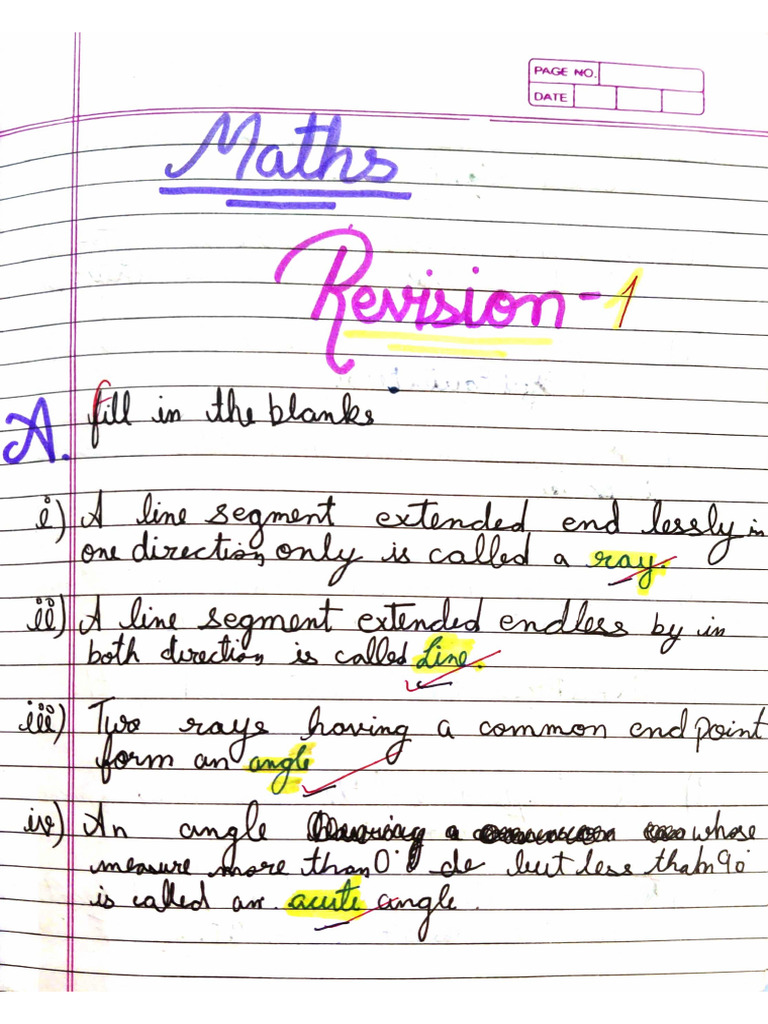 PAGE NO.
DATE
Maths
Revision-1
A. fill in the blanks
i) A line segment extended end lessly in
one direction only is called a ray.
ii) A line segment extended endless by in
both direction is called Line.
iii) Two rays having a common end point
form an angle
iv) An angle whose
measure more than 0° de but less than 90°
is called an acute angle.